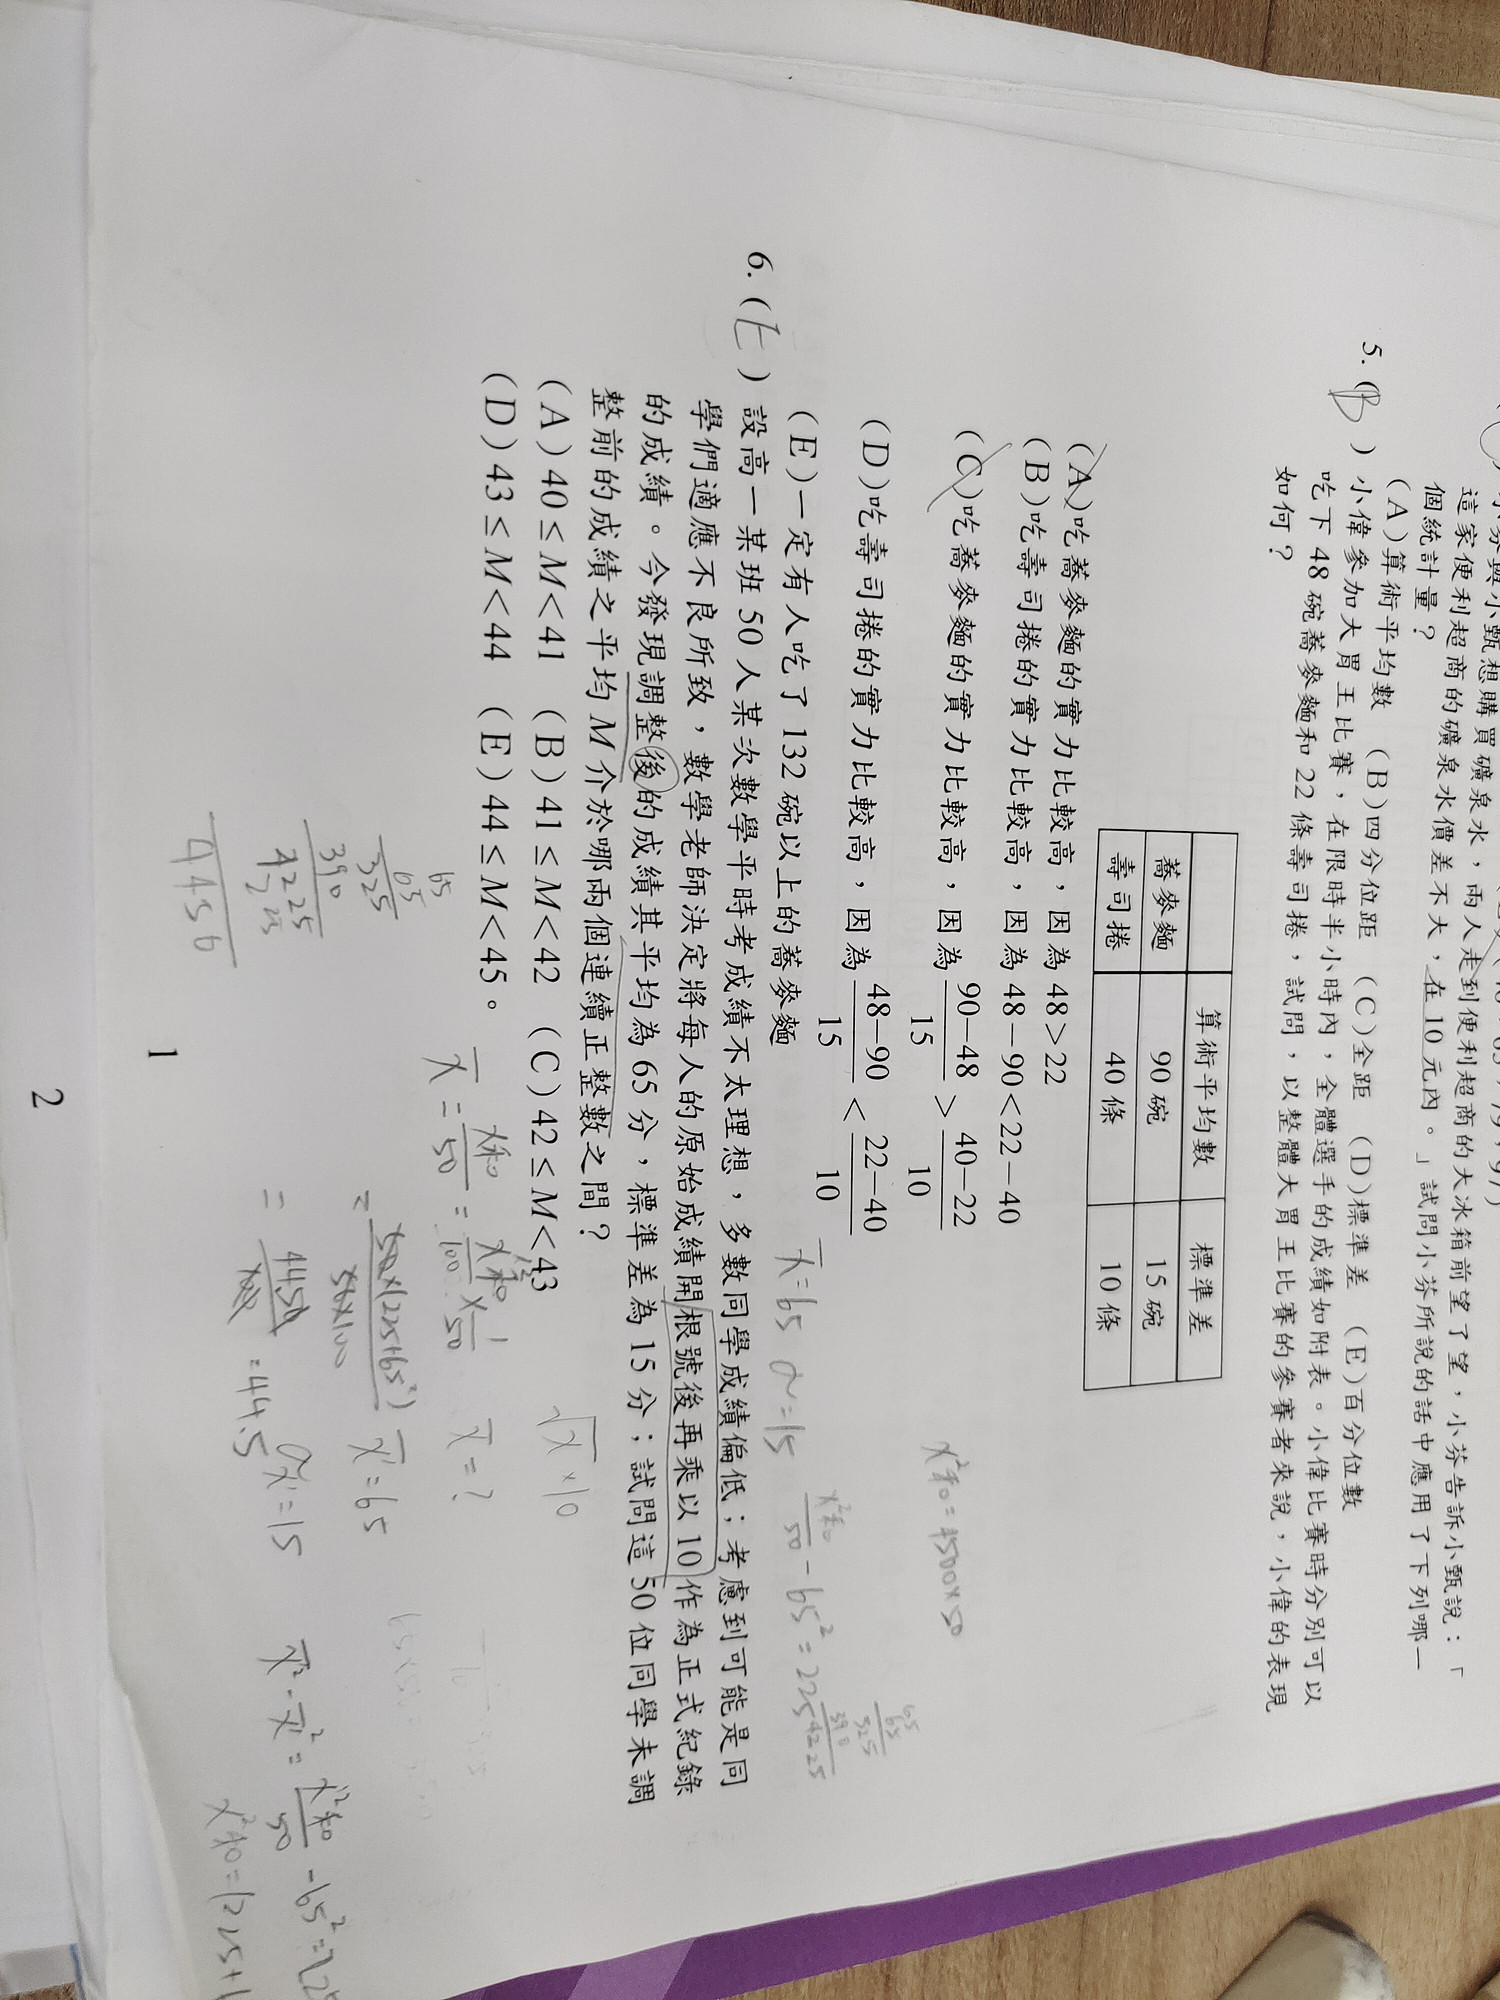 這家便利超商的礦泉水，兩人走到便利超商的大冰箱前望了望，小芬告訴小甄說：「
個統計量？價差不大，在10元內。」試問小芬所說的話中應用了下列哪一
(A)算術平均數 (B)四分位距 (C)全距 (D)標準差 (E)百分位數
5. (B)小偉參加大胃王比賽，在限時半小時內，全體選手的成績如附表。小偉比賽時分別可以
吃下48碗蕎麥麵和22條壽司捲，試問，以整體大胃王比賽的參賽者來說，小偉的表現
如何？
算術平均數 標準差
蕎麥麵 90碗 15碗
壽司捲 40條 10條
(A)吃蕎麥麵的實力比較高，因為48＞22
(B)吃壽司捲的實力比較高，因為48－90＜22－40
(C)吃蕎麥麵的實力比較高，因為 90－48/15 ＞ 40－22/10
(D)吃壽司捲的實力比較高，因為 48－90/15 ＜ 22－40/10
(E)一定有人吃了132碗以上的蕎麥麵
6. (E)設高一某班50人某次數學平時考成績不太理想，多數同學成績偏低；考慮到可能是同
學們適應不良所致，數學老師決定將每人的原始成績開根號後再乘以10作為正式紀錄
的成績。今發現調整後的成績其平均為65分，標準差為15分；試問這50位同學未調
整前的成績之平均M介於哪兩個連續正整數之間？
(A)40≤M<41 (B)41≤M<42 (C)42≤M<43
(D)43≤M<44 (E)44≤M<45。
x̄=65 σ=15
x²和=4500×50
x²和/50 - 65² = 225
65
65
325
390
4225
√x × 10
x̄ = x和/50 = x²和/100 × 1/50
x̄=?
= 50×(225+65²)/50×100
x̄'=65
= 4450/100 = 44.5
σx'=15
x²和/50 - 65² = 225
65
65
325
390
4225
225
4450
1
2